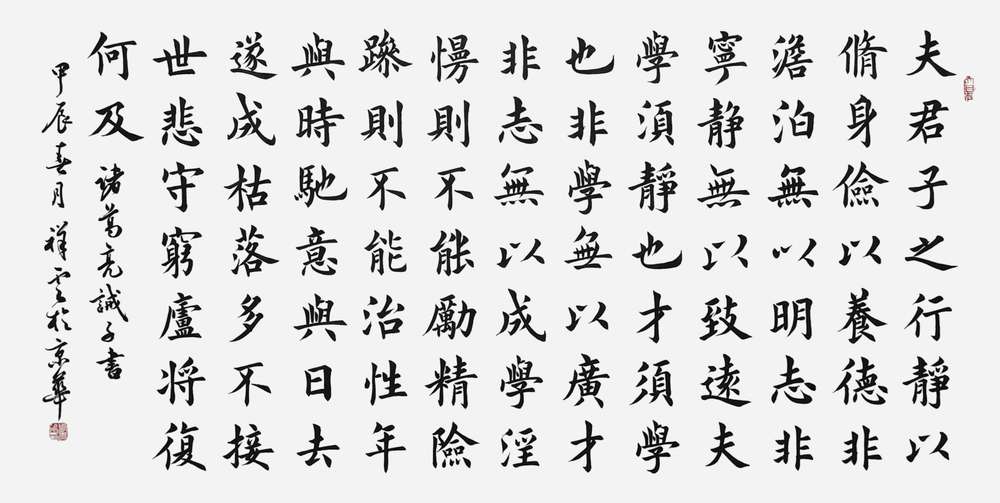 夫君子之行靜以
脩身儉以養德非
澹泊無以明志非
寧静無以致遠夫
學須靜也才須學
也非學無以廣才
非志無以成學淫
慢則不能勵精險
躁則不能治性年
與時馳意與日去
遂成枯落多不接
世悲守窮廬将復
何及
諸葛亮誡子書
甲辰春月祥雲於京華